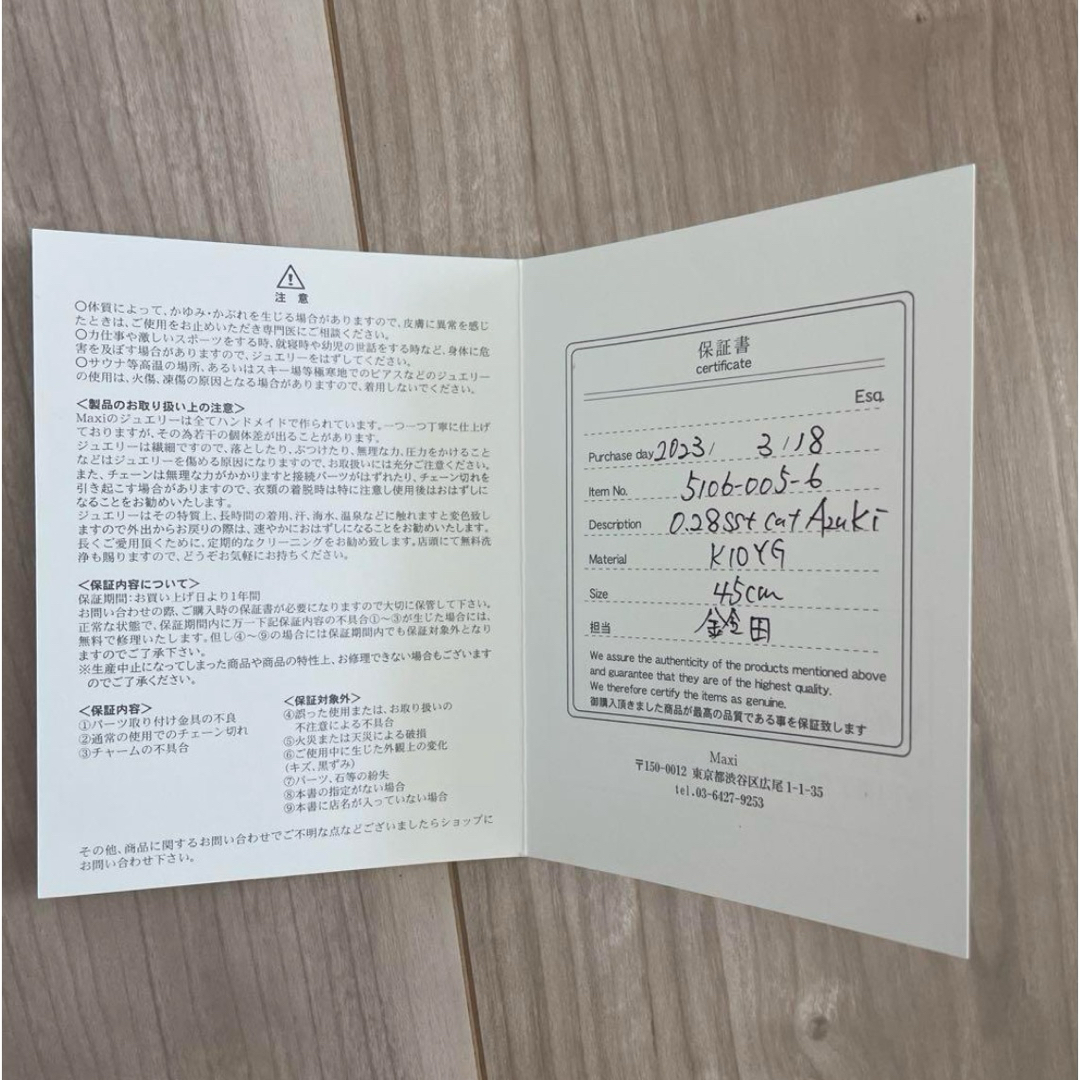 注 意
〇体質によって、かゆみ・かぶれを生じる場合がありますので、皮膚に異常を感じ
たときは、ご使用をお止めいただき専門医にご相談ください。
〇力仕事や激しいスポーツをする時、就寝時や幼児の世話をする時など、身体に危
害を及ぼす場合がありますので、ジュエリーをはずしてください。
〇サウナ等高温の場所、あるいはスキー場等極寒地でのピアスなどのジュエリー
の使用は、火傷、凍傷の原因となる場合がありますので、着用しないでください。
<製品のお取り扱い上の注意>
Maxiのジュエリーは全てハンドメイドで作られています。一つ一つ丁寧に仕上げ
ておりますが、その為若干の個体差が出ることがあります。
ジュエリーは繊細ですので、落としたり、ぶつけたり、無理な力、圧力をかけること
などはジュエリーを傷める原因になりますので、お取扱いには充分ご注意ください。
また、チェーンは無理な力がかかりますと接続パーツがはずれたり、チェーン切れを
引き起こす場合がありますので、衣類の着脱時は特に注意し使用後はおはずしに
なることをお勧めいたします。
ジュエリーはその特質上、長時間の着用、汗、海水、温泉などに触れますと変色致し
ますので外出からお戻りの際は、速やかにおはずしになることをお勧めいたします。
長くご愛用頂くために、定期的なクリーニングをお勧め致します。店頭にて無料洗
浄も賜りますので、どうぞお気軽にお持ちください。
<保証内容について>
保証期間:お買い上げ日より1年間
お問い合わせの際、ご購入時の保証書が必要になりますので大切に保管して下さい。
正常な状態で、保証期間内に万一下記保証内容の不具合①〜③が生じた場合には、
無料で修理いたします。但し④〜⑨の場合には保証期間内でも保証対象外となり
ますのでご了承下さい。
※生産中止になってしまった商品や商品の特性上、お修理できない場合もございます
のでご了承ください。
<保証内容>
①パーツ取り付け金具の不良
②通常の使用でのチェーン切れ
③チャームの不具合
<保証対象外>
④誤った使用または、お取り扱いの
不注意による不具合
⑤火災または天災による破損
⑥ご使用中に生じた外観上の変化
(キズ、黒ずみ)
⑦パーツ、石等の紛失
⑧本書の指定がない場合
⑨本書に店名が入っていない場合
その他、商品に関するお問い合わせでご不明な点などございましたらショップに
お問い合わせ下さい。
保証書
certificate
Esq.
Purchase day 2023/ 3/18
Item No. 5106-005-6
Description 0.28sst cut Azuki
Material K10YG
Size 45cm
担当 金田
We assure the authenticity of the products mentioned above
and guarantee that they are of the highest quality.
We therefore certify the items as genuine.
御購入頂きました商品が最高の品質である事を保証致します
Maxi
〒150-0012 東京都渋谷区広尾1-1-35
tel.03-6427-9253